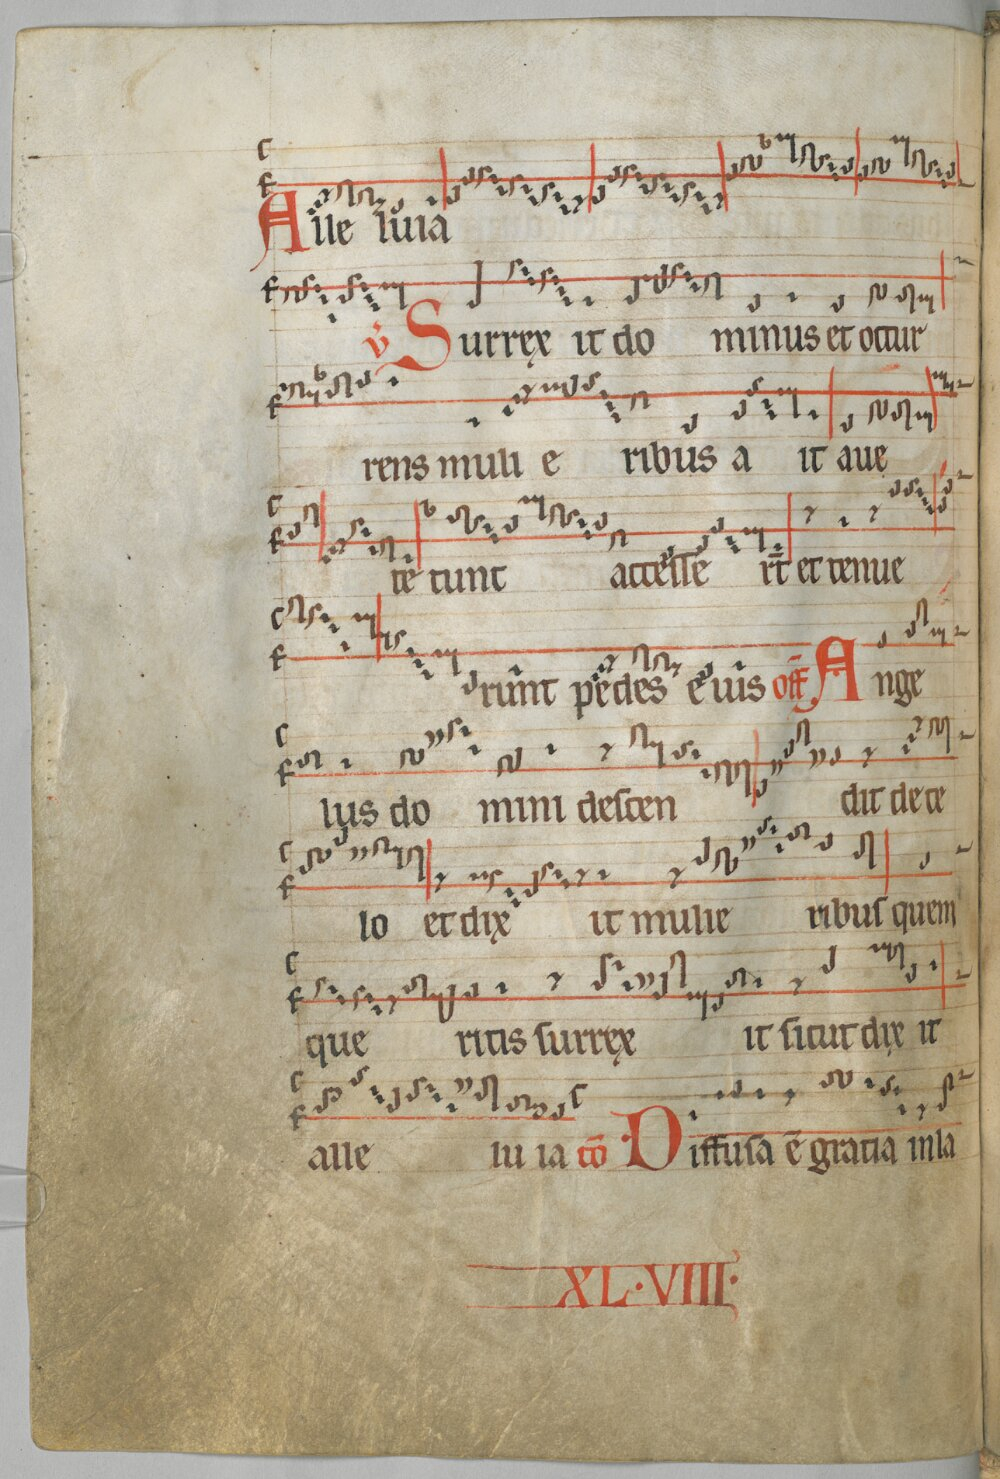 Alle luia
v̄ Surrex it do minus et occur
rens muli e ribus a it aue
te tunc accesse rt̄ et tenue
runt pedes e ius off̄ Ange
lus do mini descen dit de ce
lo et dix it mulie ribus quem
que ritis surrex it sicut dix it
alle lu ia cō Diffusa ē gratia in la
XL·VIIII·